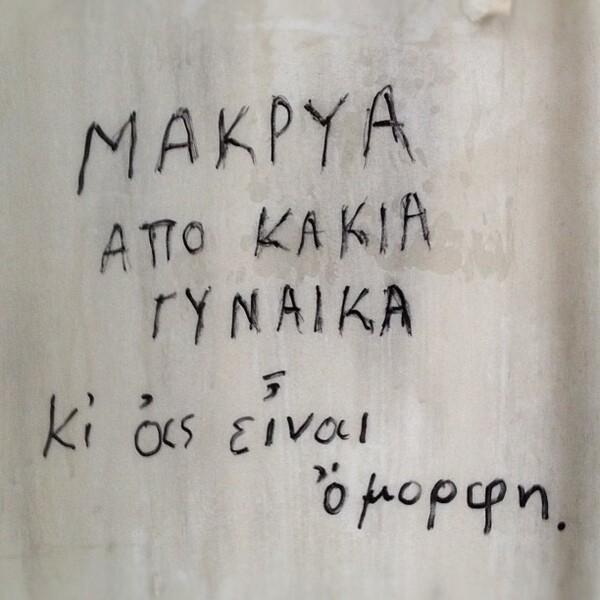 ΜΑΚΡΥΑ
ΑΠΟ ΚΑΚΙΑ
ΓΥΝΑΙΚΑ
κι' ἄς εἶναι
ὄμορφη.